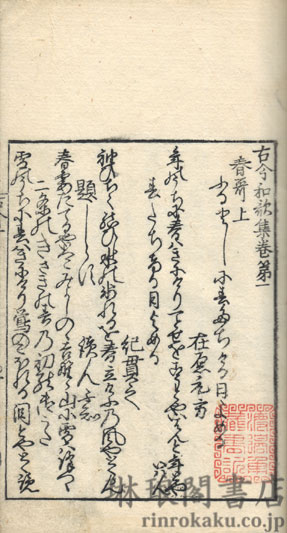 古今和歌集巻第一
春哥上
ふるとしに春たちける日よめる
在原元方
年の内に春はきにけり一とせをこそとやいはんことしとや
いはん
春たちける日よめる
紀貫之
袖ひちて結ひし水の氷れるを春立けふの風やとくらん
題しらす 読人しらす
春霞たてるやいつこみよしのゝ吉野の山に雪はふりつゝ
二条のきさきの春の初の御うた
雪の内に春はきにけり鶯のこほれる泪今やとく覧
林琅閣書店
rinrokaku.co.jp